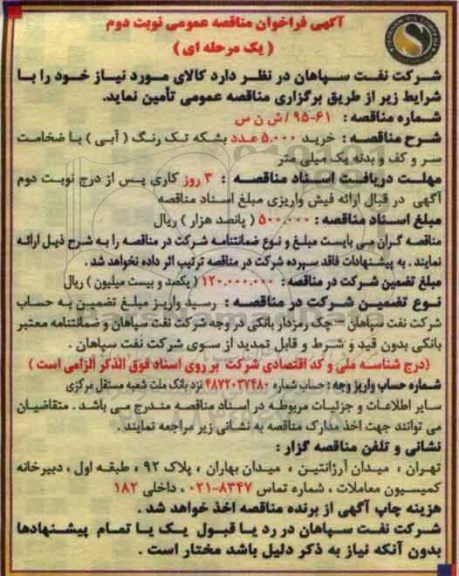 آگهی فراخوان مناقصه عمومی نوبت دوم
( یک مرحله ای )
شرکت نفت سپاهان در نظر دارد کالای مورد نیاز خود را با
شرایط زیر از طریق برگزاری مناقصه عمومی تأمین نماید.
شماره مناقصه : ۶۱-۹۵ / ش ن س
شرح مناقصه : خرید ۵.۰۰۰ عدد بشکه تک رنگ ( آبی ) با ضخامت
سر و کف و بدنه یک میلی متر
مهلت دریافت اسناد مناقصه : ۳ روز کاری پس از درج نوبت دوم
آگهی در قبال ارائه فیش واریزی مبلغ اسناد مناقصه
مبلغ اسناد مناقصه : ۵۰۰.۰۰۰ ( پانصد هزار ) ریال
مناقصه گران می بایست مبلغ و نوع ضمانتنامه شرکت در مناقصه را به شرح ذیل ارائه
نمایند . به پیشنهادات فاقد سپرده شرکت در مناقصه ترتیب اثر داده نخواهد شد .
مبلغ تضمین شرکت در مناقصه : ۱۲۰.۰۰۰.۰۰۰ ( یکصد و بیست میلیون ) ریال
نوع تضمین شرکت در مناقصه : رسید واریز مبلغ تضمین به حساب
شرکت نفت سپاهان – چک رمزدار بانکی در وجه شرکت نفت سپاهان و ضمانتنامه معتبر
بانکی بدون قید و شرط و قابل تمدید از سوی شرکت نفت سپاهان .
(درج شناسه ملی و کد اقتصادی شرکت بر روی اسناد فوق الذکر الزامی است )
شماره حساب واریز وجه : حساب شماره ۴۸۷۲۰۳۷۴۸۰ نزد بانک ملت شعبه مستقل مرکزی
سایر اطلاعات و جزئیات مربوطه در اسناد مناقصه مندرج می باشد . متقاضیان
می توانند جهت اخذ مدارک مناقصه به نشانی زیر مراجعه نمایند .
نشانی و تلفن مناقصه گزار :
تهران ، میدان آرژانتین ، میدان بهاران ، پلاک ۹۲ ، طبقه اول ، دبیرخانه
کمیسیون معاملات ، شماره تماس ۸۳۴۷-۰۲۱ ، داخلی ۱۸۲
هزینه چاپ آگهی از برنده مناقصه اخذ خواهد شد .
شرکت نفت سپاهان در رد یا قبول یک یا تمام پیشنهادها
بدون آنکه نیاز به ذکر دلیل باشد مختار است .